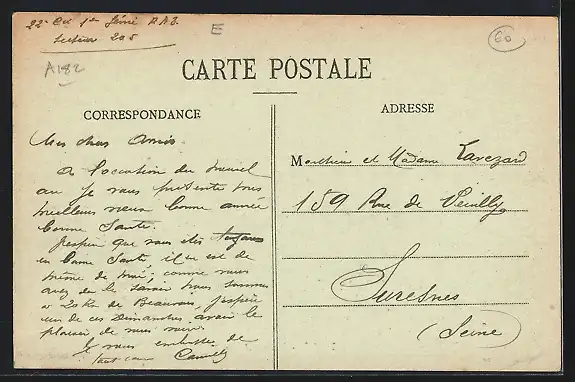 22e Cie 1er Génie
Secteur 205
E
60
A182
CARTE POSTALE
CORRESPONDANCE
ADRESSE
Mes chers Amis
A l'occasion du nouvel
an je vous présente tous
meilleurs vœux bonne année
bonne Santé.
J'espère que vous êtes toujours
en bonne Santé, il en est de
même de moi; comme vous
avez du le savoir nous sommes
à 20 Km de Beauvais, j'espère
un de ces dimanches avoir le
plaisir de vous voir.
Je vous embrasse de
tout cœur Camille
Monsieur et Madame Larezard
159 Rue de
Suresnes
(Seine)